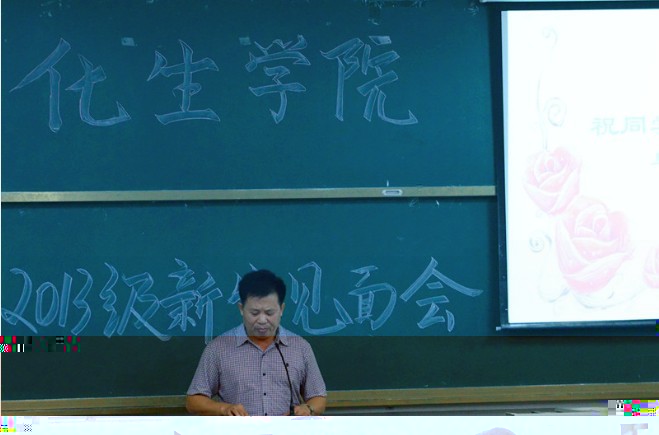 化生学院
祝同
2013级新生见面会